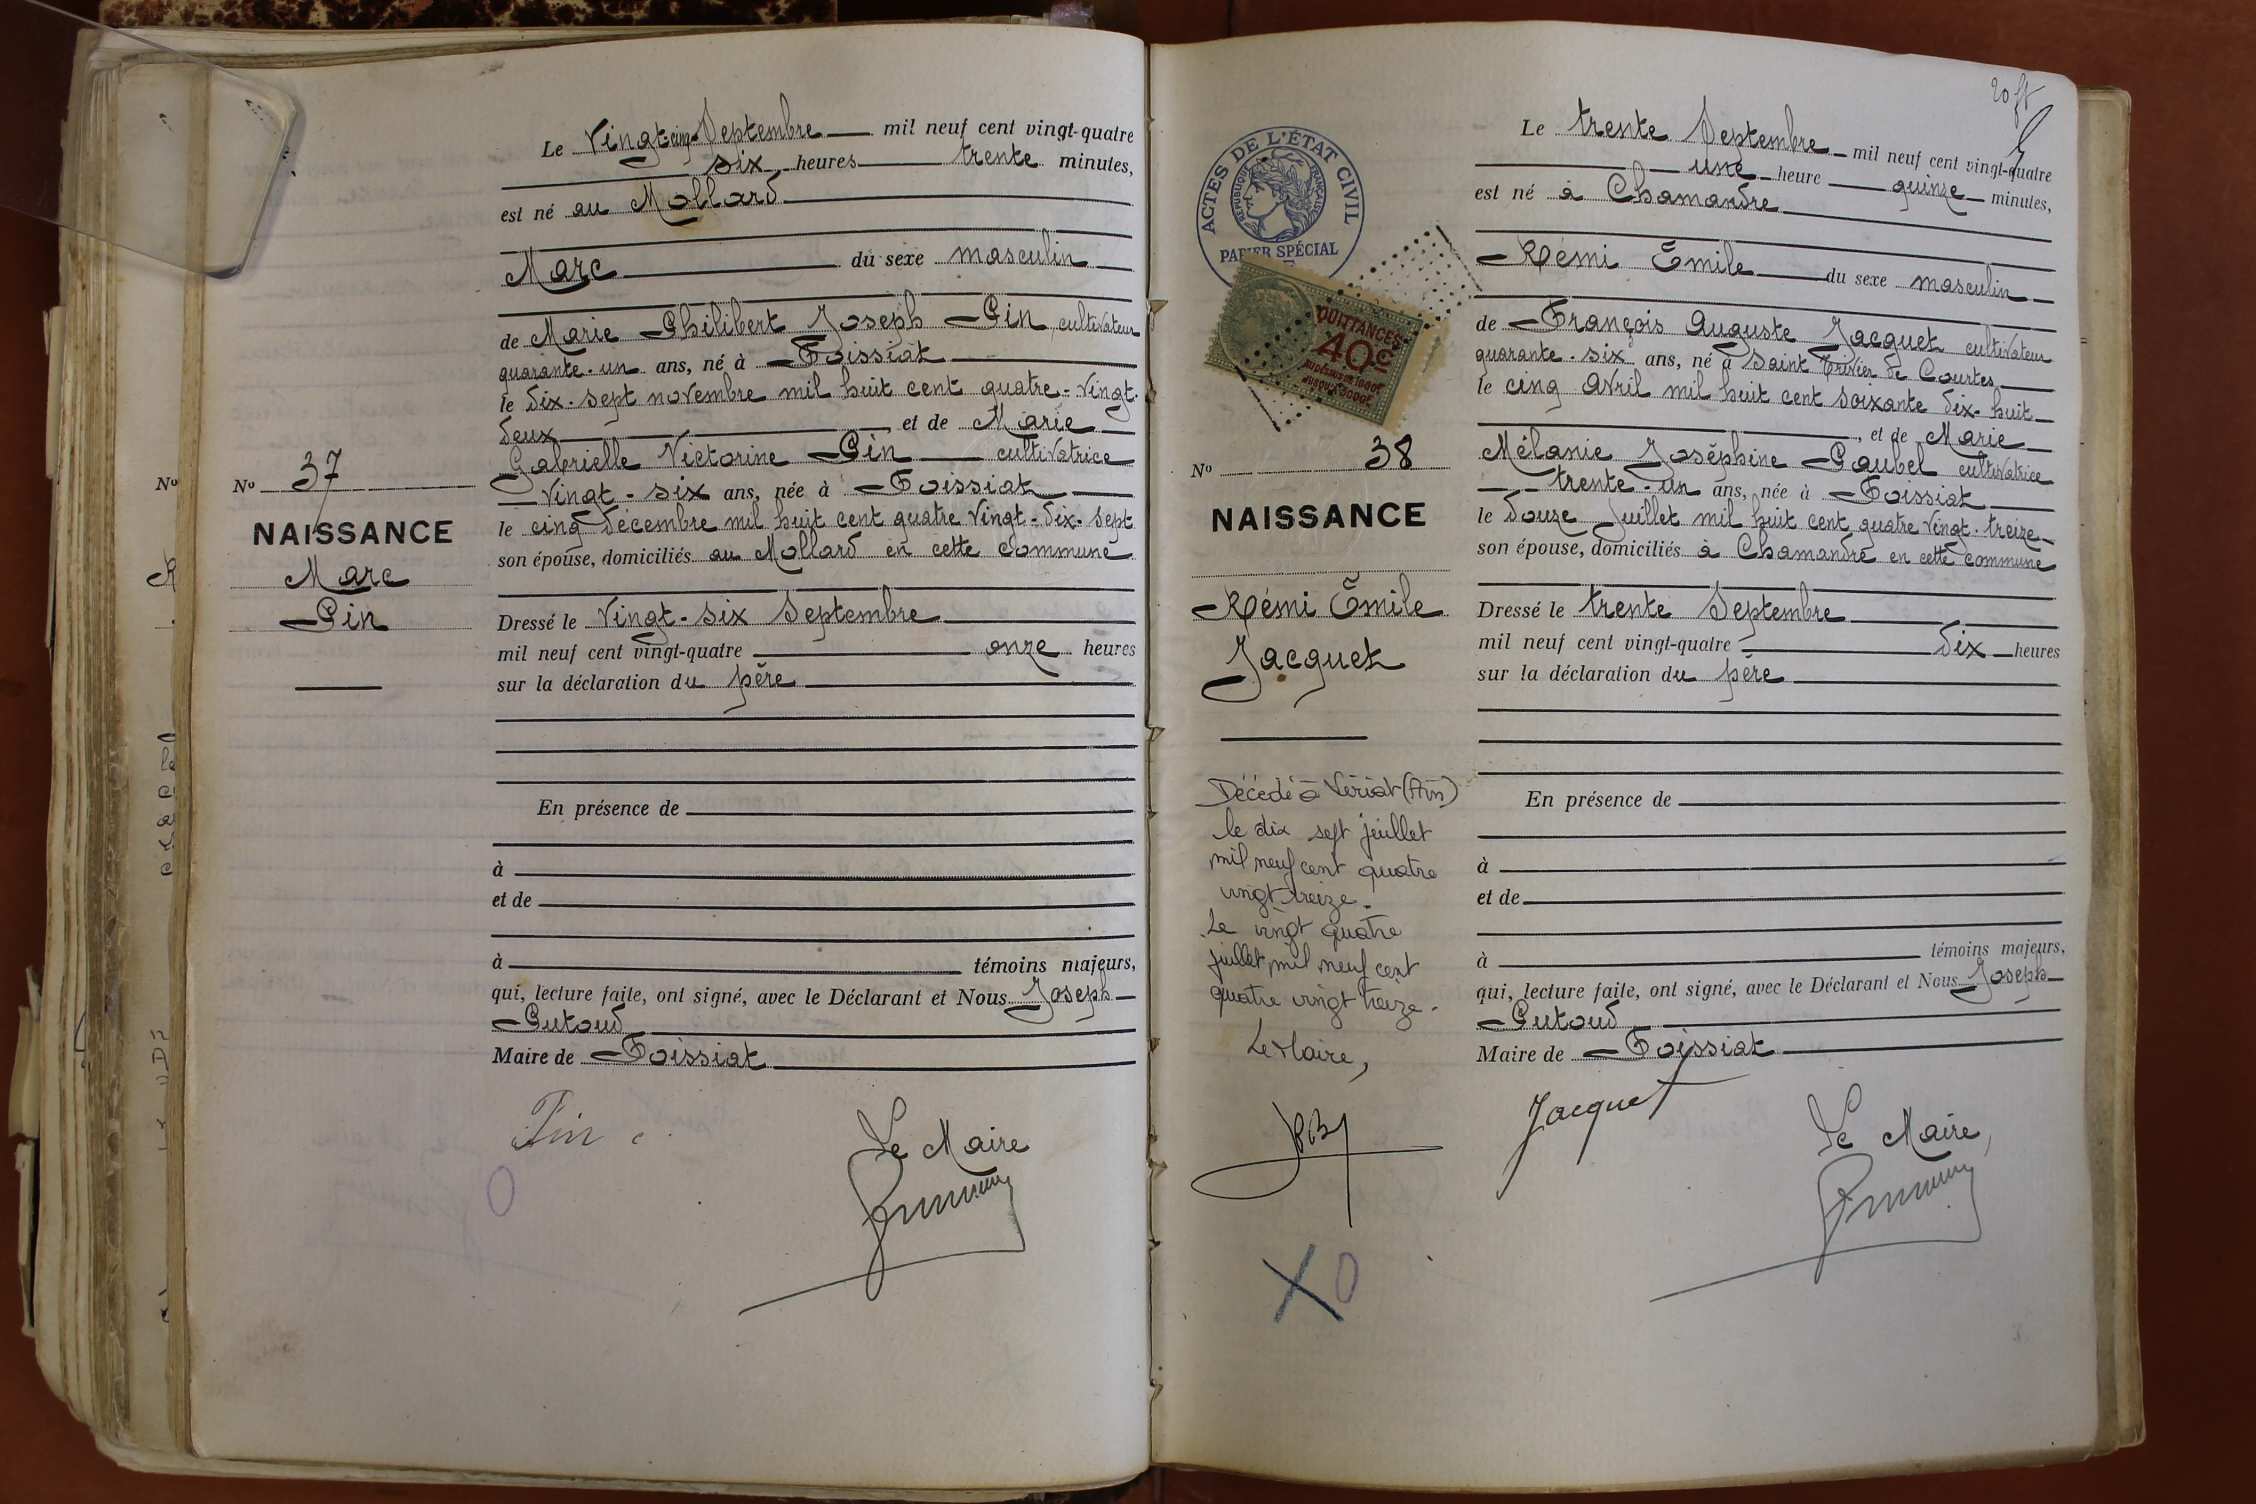 Le Vingt-cinq Septembre mil neuf cent vingt-quatre
six heures trente minutes,
est né au Mollard
Marc du sexe masculin
de Marie Philibert Joseph Pin cultivateur
quarante-un ans, né à Foissiat
le dix-sept novembre mil huit cent quatre-vingt-
deux, et de Marie
Gabrielle Victorine Pin cultivatrice
vingt-six ans, née à Foissiat
le cinq décembre mil huit cent quatre vingt-dix-sept
son épouse, domiciliés au Mollard en cette commune
Dressé le vingt-six Septembre
mil neuf cent vingt-quatre onze heures
sur la déclaration du père
En présence de
à
et de
à témoins majeurs,
qui, lecture faite, ont signé, avec le Déclarant et Nous Joseph
Putoud
Maire de Foissiat
Pin
Le Maire
No
No 37
NAISSANCE
Marc
Pin
ACTES DE L'ÉTAT CIVIL
RÉPUBLIQUE FRANÇAISE
PAPIER SPÉCIAL
QUITTANCES
40c
No 38
NAISSANCE
Rémi Émile
Jacquet
Décédé à Viriat (Ain)
le dix sept juillet
mil neuf cent quatre
vingt treize.
Le vingt quatre
juillet mil neuf cent
quatre vingt treize.
Le Maire,
20 ft
Le trente Septembre mil neuf cent vingt-quatre
une heure quinze minutes,
est né à Chamandre
Rémi Émile du sexe masculin
de François Auguste Jacquet cultivateur
quarante-six ans, né à Saint Trivier de Courtes
le cinq Avril mil huit cent soixante dix-huit
, et de Marie
Mélanie Joséphine Paubel cultivatrice
trente-un ans, née à Foissiat
le douze Juillet mil huit cent quatre vingt-treize
son épouse, domiciliés à Chamandre en cette commune
Dressé le trente Septembre
mil neuf cent vingt-quatre dix heures
sur la déclaration du père
En présence de
à
et de
à témoins majeurs,
qui, lecture faite, ont signé, avec le Déclarant et Nous Joseph
Putoud
Maire de Foissiat
Jacquet
Le Maire,